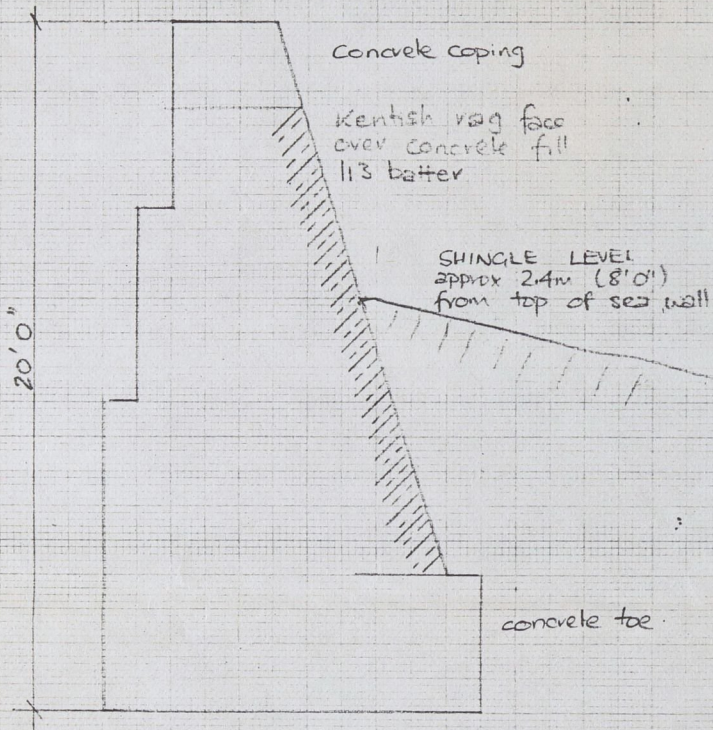 Concrete coping
Kentish rag face
over concrete fill
1:3 batter
SHINGLE LEVEL
approx 2.4m (8'0")
from top of sea wall
20'0"
concrete toe.